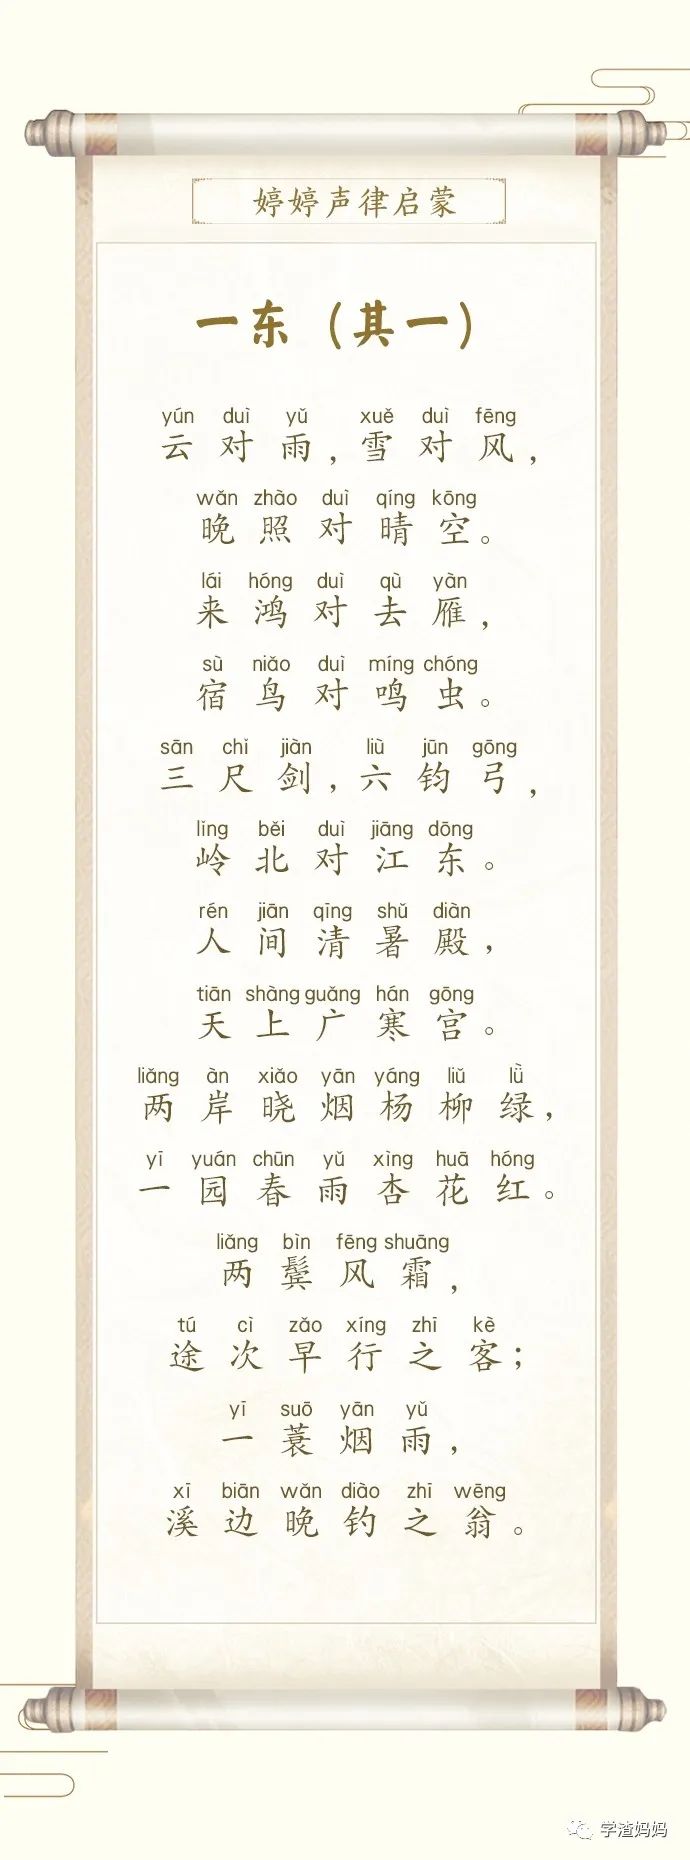 婷婷声律启蒙
一东（其一）
yún duì yǔ xuě duì fēng
云对雨，雪对风，
wǎn zhào duì qíng kōng
晚照对晴空。
lái hóng duì qù yàn
来鸿对去雁，
sù niǎo duì míng chóng
宿鸟对鸣虫。
sān chǐ jiàn liù jūn gōng
三尺剑，六钧弓，
lǐng běi duì jiāng dōng
岭北对江东。
rén jiān qīng shǔ diàn
人间清暑殿，
tiān shàng guǎng hán gōng
天上广寒宫。
liǎng àn xiǎo yān yáng liǔ lǜ
两岸晓烟杨柳绿，
yī yuán chūn yǔ xìng huā hóng
一园春雨杏花红。
liǎng bìn fēng shuāng
两鬓风霜，
tú cì zǎo xíng zhī kè
途次早行之客；
yī suō yān yǔ
一蓑烟雨，
xī biān wǎn diào zhī wēng
溪边晚钓之翁。
学渣妈妈